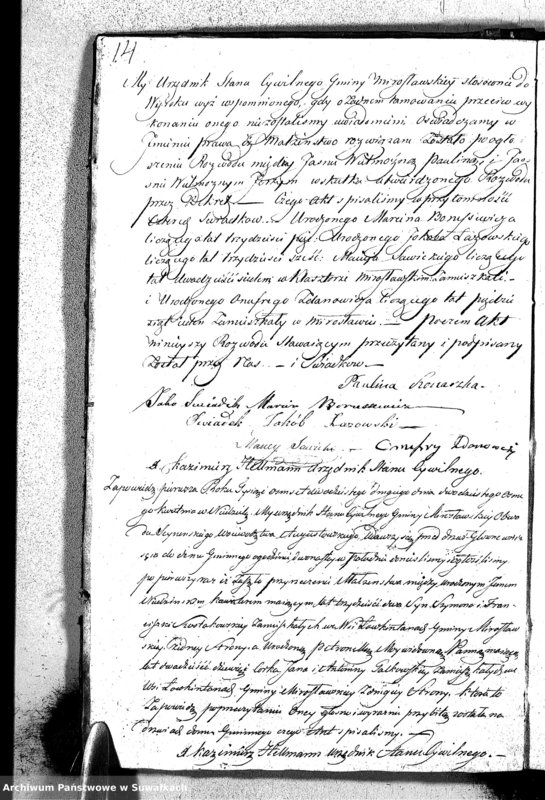 14
My Urzędnik Stanu Cywilnego Gminy Mirosławskiey stosownie do
Wyroku wyż wspomnionego, gdy o żadnem tamowaniu przeciw wy
konaniu onego niezostaliśmy uwiadomieni Oświadczamy w
Imieniu prawa iż Małżeństwo rozwiązane Zostało po ogło
szeniu Rozwodu między Jaśnie Wielmożną Pauliną i Jaś
nie Wielmożnym Jerzym w skutku utwierdzonego Rozwodu
przez Dekret — Czego Akt spisaliśmy w przytomności
Świadkow — Urodzonego Marcina Borusiewicza
liczącego lat trzydzieści pięć: Urodzonego Jakóba Łazowskiego
liczącego lat trzydzieści sześć: Maucego Sawickiego liczącego
lat dwadzieścia siedem w Klasztorze Mirosławskim Zamieszkali —
i Urodzonego Onufrego Zdanowicza liczącego lat pięćdzie
siąt Zamieszkały w Mirosławiu — poczem Akt
ninieyszy Rozwodu Stawaiącym przeczytany i podpisany
Został przez Nas — i Świadkow —
Paulina
Jako Świadek Marcin Borusiewicz
Świadek Jakób Łazowski —
Maucy Sawicki — Onufry
Kazimierz Hellmann Urzędnik Stanu Cywilnego.
Zapowiedź pierwsza Roku Tysiąc ośmset dwudziestego drugiego dnia dwudziestego ósme
go kwietnia w Niedzielę, My Urzędnik Stanu Cywilnego Gminy Mirosławskiey Obwo
du Seynenskiego Woiewodztwa Augustowskiego, stawiwszy się przed drzwi Główne weiś
cia do domu Gminnego o godzinie dwunastey w Południe donieśliśmy i ogłosiliśmy
po pierwszy raz iż Zaszło przyrzeczenie Małżeństwa między urodzonym Janem
kawalerem maiącym lat trzydzieści dwa Syn Szymona i Fran
ciszki Zamieszkałych we Wsi Łowkintanach Gminy Mirosław
skiey, z iedney Strony, a Urodzoną Petronellą Panną maiącą
lat dwadzieścia dziewięć Corka Jana i Zamieszkałych we
Wsi Łowkintanach Gminy Mirosławskiey z drugiey Strony. Która to
Zapowiedź po przeczytaniu Oney głośno i wyraźnie przybitą została na
Drzwiach domu Gminnego czego Akt spisaliśmy. —
Kazimierz Hellmann Urzędnik Stanu Cywilnego. —
Archiwum Państwowe w Suwałkach